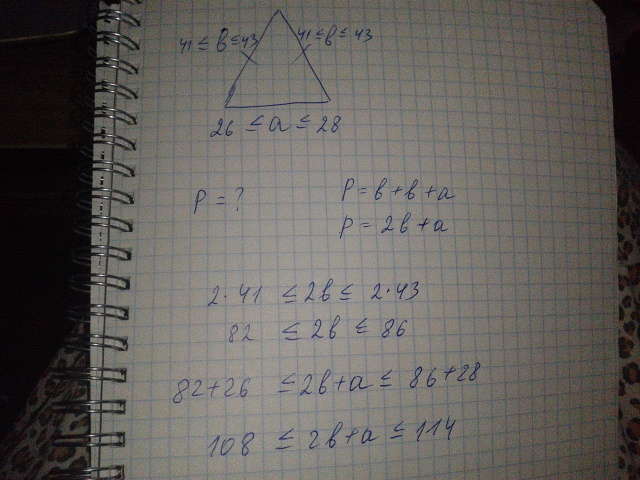 41 ≤ в ≤ 43 41 ≤ в ≤ 43
26 ≤ a ≤ 28
P = ? P = в + в + a
P = 2в + a
2·41 ≤ 2в ≤ 2·43
82 ≤ 2в ≤ 86
82+26 ≤ 2в+a ≤ 86+28
108 ≤ 2в+a ≤ 114